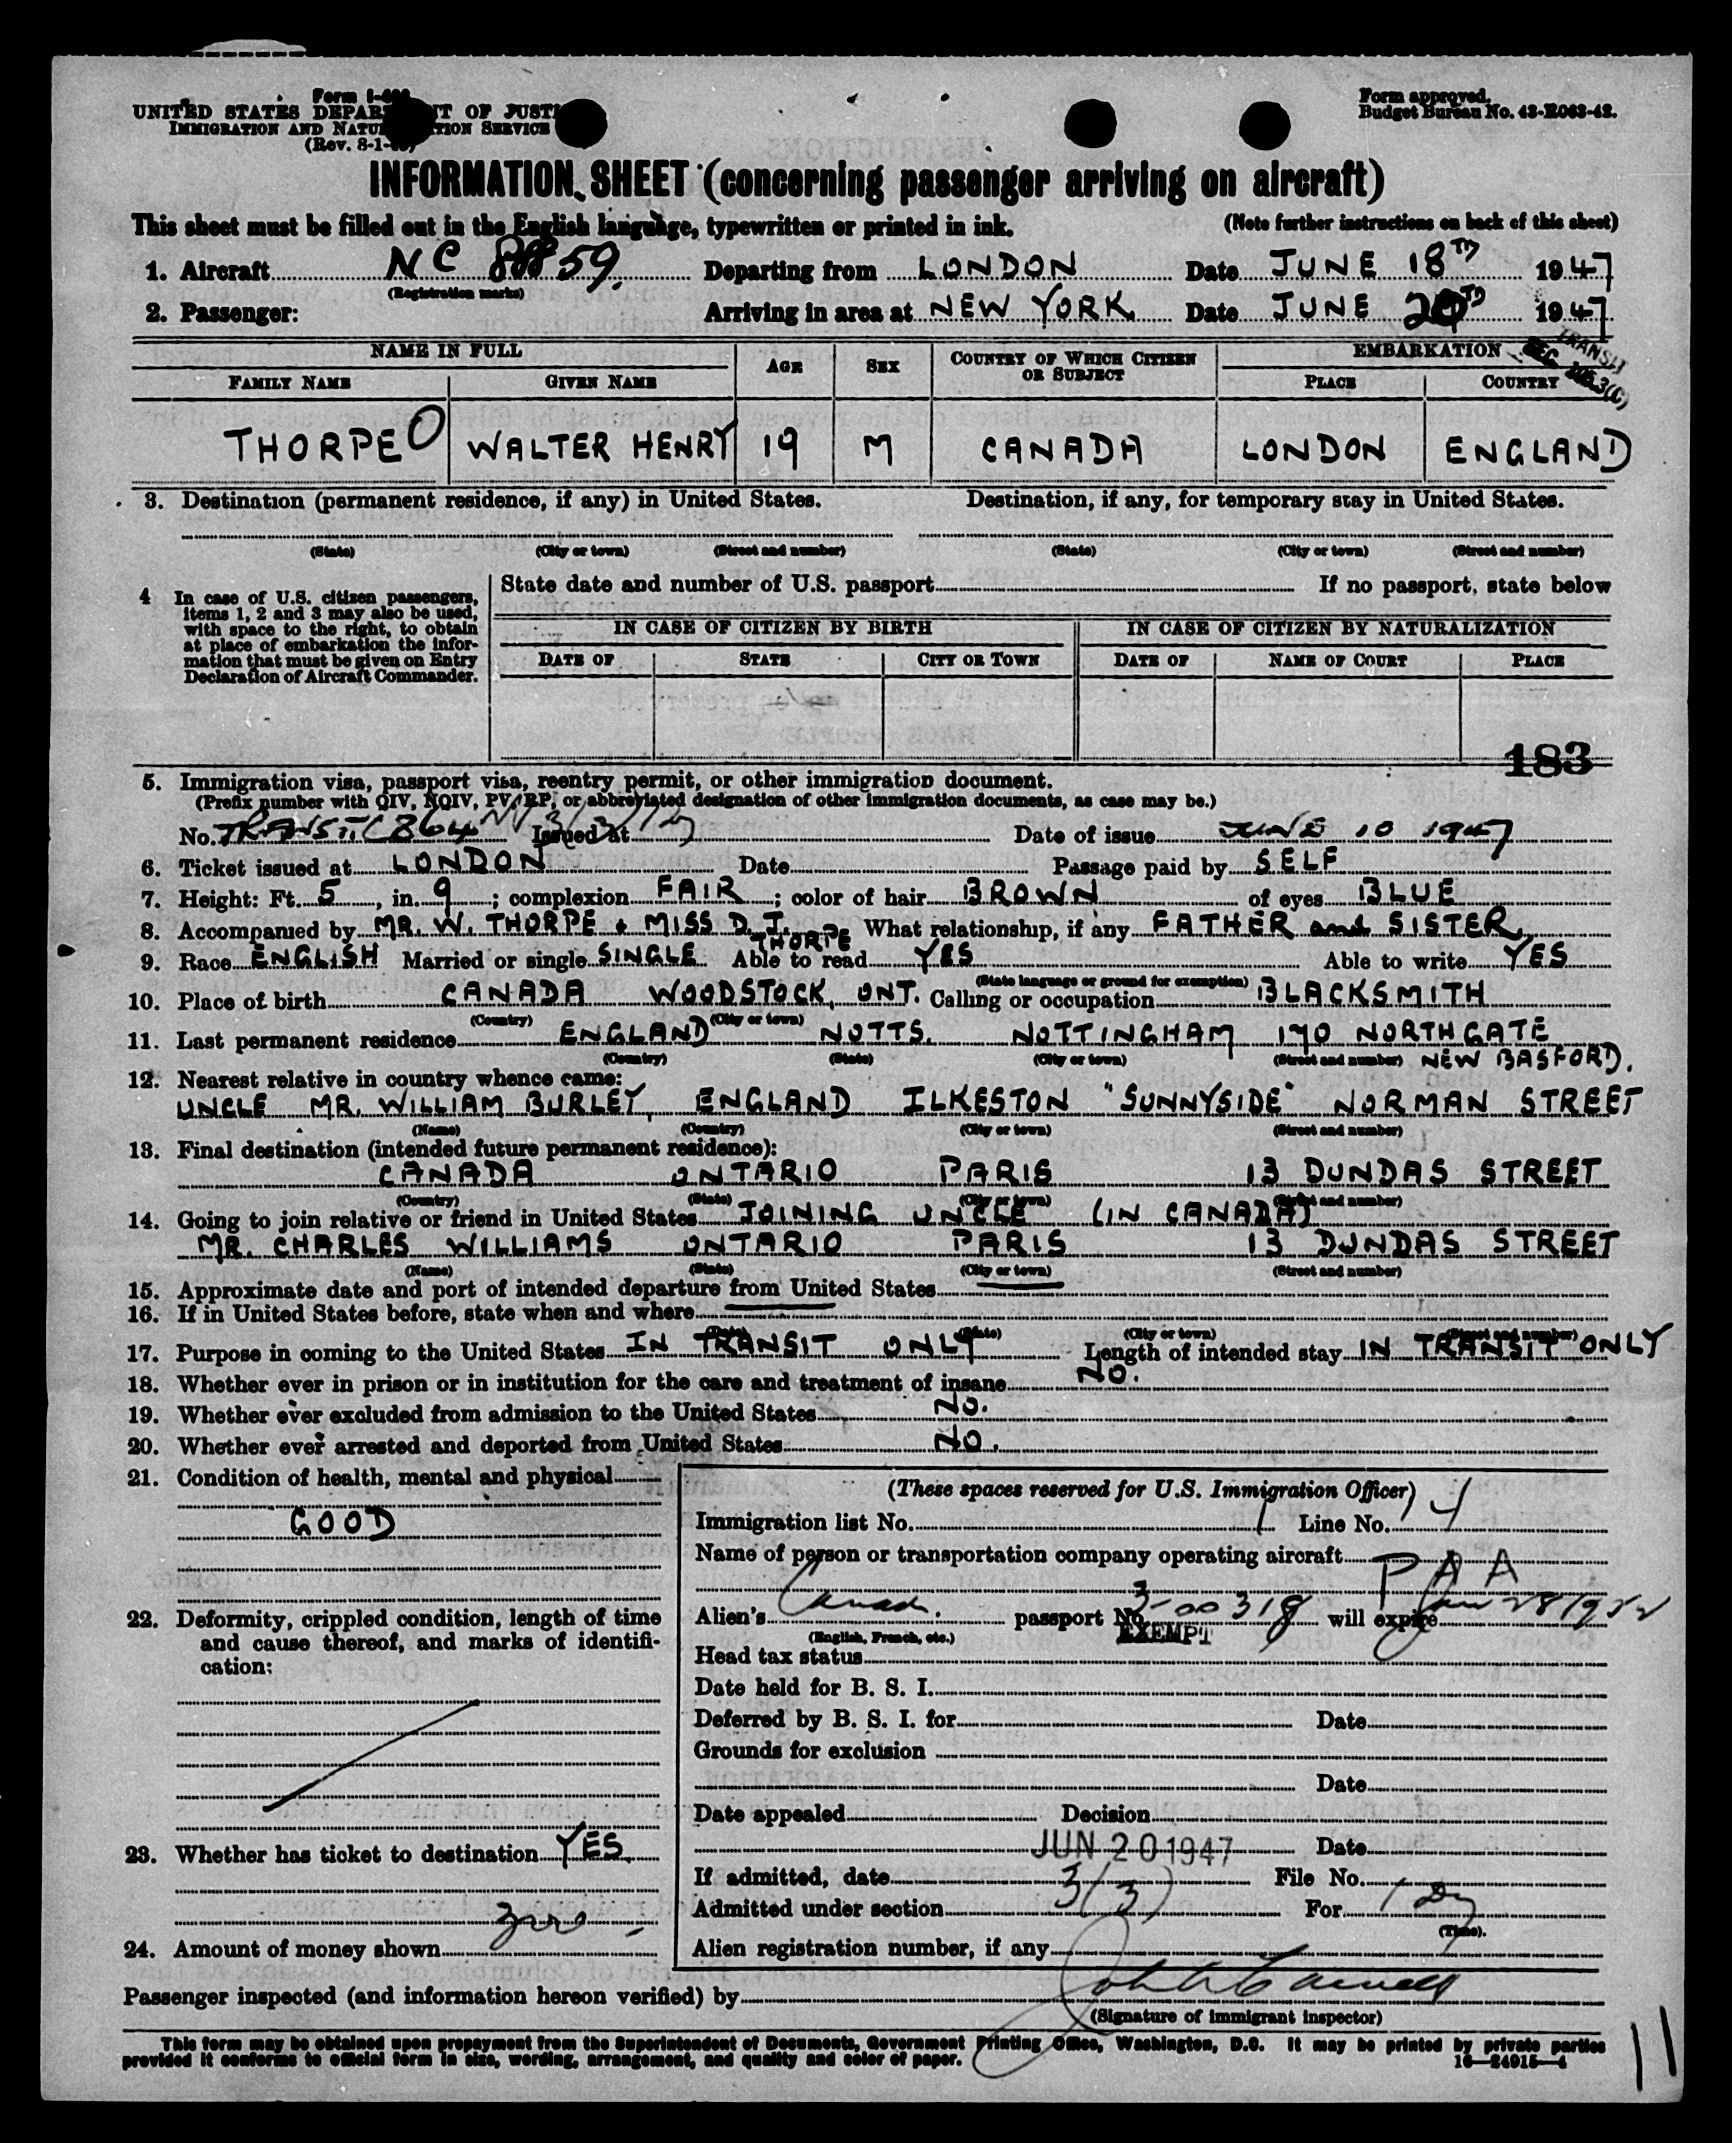 UNITED STATES DEPARTMENT OF JUSTICE
IMMIGRATION AND NATURALIZATION SERVICE
(Rev. 8-1-
Form approved.
Budget Bureau No. 43-R063-42.
INFORMATION SHEET (concerning passenger arriving on aircraft)
This sheet must be filled out in the English language, typewritten or printed in ink. (Note further instructions on back of this sheet)
1. Aircraft NC 59. Departing from LONDON Date JUNE 18TH 1947
(Registration marks)
2. Passenger: Arriving in area at NEW YORK Date JUNE 20TH 1947
TRANSIT
SEC.
NAME IN FULL AGE SEX COUNTRY OF WHICH CITIZEN OR SUBJECT EMBARKATION
FAMILY NAME GIVEN NAME PLACE COUNTRY
THORPE WALTER HENRY 19 M CANADA LONDON ENGLAND
3. Destination (permanent residence, if any) in United States. Destination, if any, for temporary stay in United States.
(State) (City or town) (Street and number) (State) (City or town) (Street and number)
4 In case of U.S. citizen passengers,
items 1, 2 and 3 may also be used,
with space to the right, to obtain
at place of embarkation the infor-
mation that must be given on Entry
Declaration of Aircraft Commander.
State date and number of U.S. passport If no passport, state below
IN CASE OF CITIZEN BY BIRTH IN CASE OF CITIZEN BY NATURALIZATION
DATE OF STATE CITY OR TOWN DATE OF NAME OF COURT PLACE
183
5. Immigration visa, passport visa, reentry permit, or other immigration document.
(Prefix number with QIV, NQIV, PV, RP, or abbreviated designation of other immigration documents, as case may be.)
No. TRANSIT 864 Issued at Date of issue JUNE 10 1947
6. Ticket issued at LONDON Date Passage paid by SELF
7. Height: Ft. 5, in. 9; complexion FAIR; color of hair BROWN of eyes BLUE
8. Accompanied by MR. W. THORPE + MISS D. J. THORPE What relationship, if any FATHER and SISTER
9. Race ENGLISH Married or single SINGLE Able to read YES Able to write YES
(State language or ground for exemption)
10. Place of birth CANADA WOODSTOCK, ONT. Calling or occupation BLACKSMITH
(Country) (City or town)
11. Last permanent residence ENGLAND NOTTS. NOTTINGHAM 170 NORTHGATE
(Country) (State) (City or town) (Street and number) NEW BASFORD.
12. Nearest relative in country whence came:
UNCLE MR. WILLIAM BURLEY, ENGLAND ILKESTON "SUNNYSIDE" NORMAN STREET
(Name) (Country) (City or town) (Street and number)
13. Final destination (intended future permanent residence):
CANADA ONTARIO PARIS 13 DUNDAS STREET
(Country) (State) (City or town) (Street and number)
14. Going to join relative or friend in United States JOINING UNCLE (IN CANADA)
MR. CHARLES WILLIAMS ONTARIO PARIS 13 DUNDAS STREET
(Name) (State) (City or town) (Street and number)
15. Approximate date and port of intended departure from United States
16. If in United States before, state when and where
(Date) (State) (City or town) (Street and number)
17. Purpose in coming to the United States IN TRANSIT ONLY Length of intended stay IN TRANSIT ONLY
18. Whether ever in prison or in institution for the care and treatment of insane NO.
19. Whether ever excluded from admission to the United States NO.
20. Whether ever arrested and deported from United States NO.
21. Condition of health, mental and physical
GOOD
22. Deformity, crippled condition, length of time
and cause thereof, and marks of identifi-
cation:
23. Whether has ticket to destination YES
24. Amount of money shown
(These spaces reserved for U.S. Immigration Officer)
Immigration list No. 1 Line No. 4
Name of person or transportation company operating aircraft
PAA
Alien's Canada passport No. 3-00318 will expire Jan 28 1952
(English, French, etc.)
EXEMPT
Head tax status
Date held for B. S. I.
Deferred by B. S. I. for Date
Grounds for exclusion
Date
Date appealed Decision
JUN 20 1947 Date
If admitted, date File No.
Admitted under section 3(3) For 1 Dy
(Time).
Alien registration number, if any
Passenger inspected (and information hereon verified) by
(Signature of immigrant inspector)
This form may be obtained upon prepayment from the Superintendent of Documents, Government Printing Office, Washington, D.C. It may be printed by private parties
provided it conforms to official form in size, wording, arrangement, and quality and color of paper. 16—24915-4
11